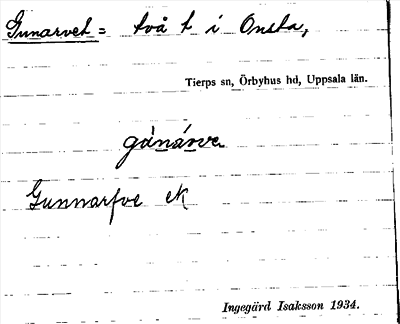 Gunarvet = två t i Onsta,
Tierps sn, Örbyhus hd, Uppsala län.
gùnárva
Gunnarfve ek
Ingegärd Isaksson 1934.